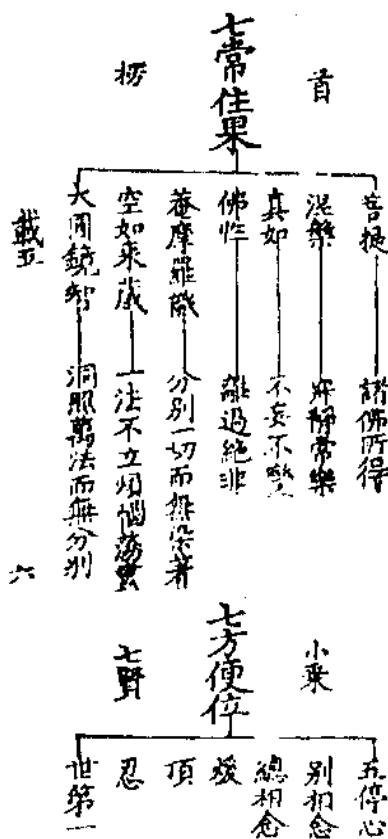 首
七常住果
楞
菩提 諸佛所得
涅槃 寂靜常樂
真如 不妄不變
佛性 離過絕非
菴摩羅識 分別一切而無染著
空如來藏 一法不立煩惱蕩盡
大圓鏡智 洞照萬法而無分別
載五 六
小乘
七方便位
七賢
五停心
別相念
總相念
煖
頂
忍
世第一